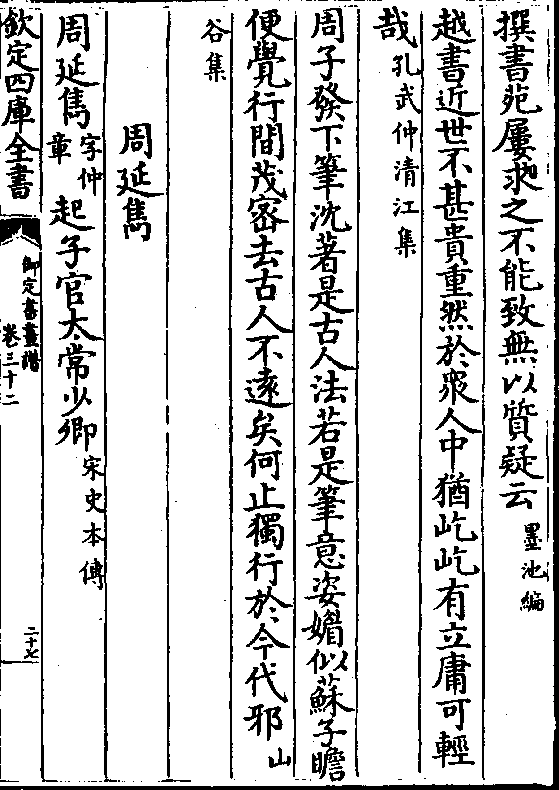 撰書苑屢求之不能致無以質疑云墨池編
越書近世不甚貴重然於衆人中猶屹屹有立庸可輕
哉孔武仲清江集
周子發下筆沈著是古人法若是筆意姿媚似蘇子瞻
便覺行間茂宻去古人不遠矣何止獨行於今代邪山
谷集
周延雋
周延雋字仲章起子官太常少卿宋史本傳
欽定四庫全書
御定書畫譜
卷三十二
二十七